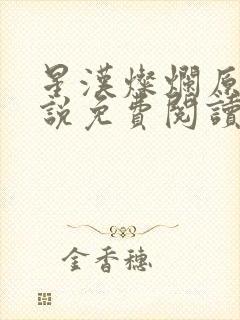 星漢燦爛原
說免費閱讀
金香穗